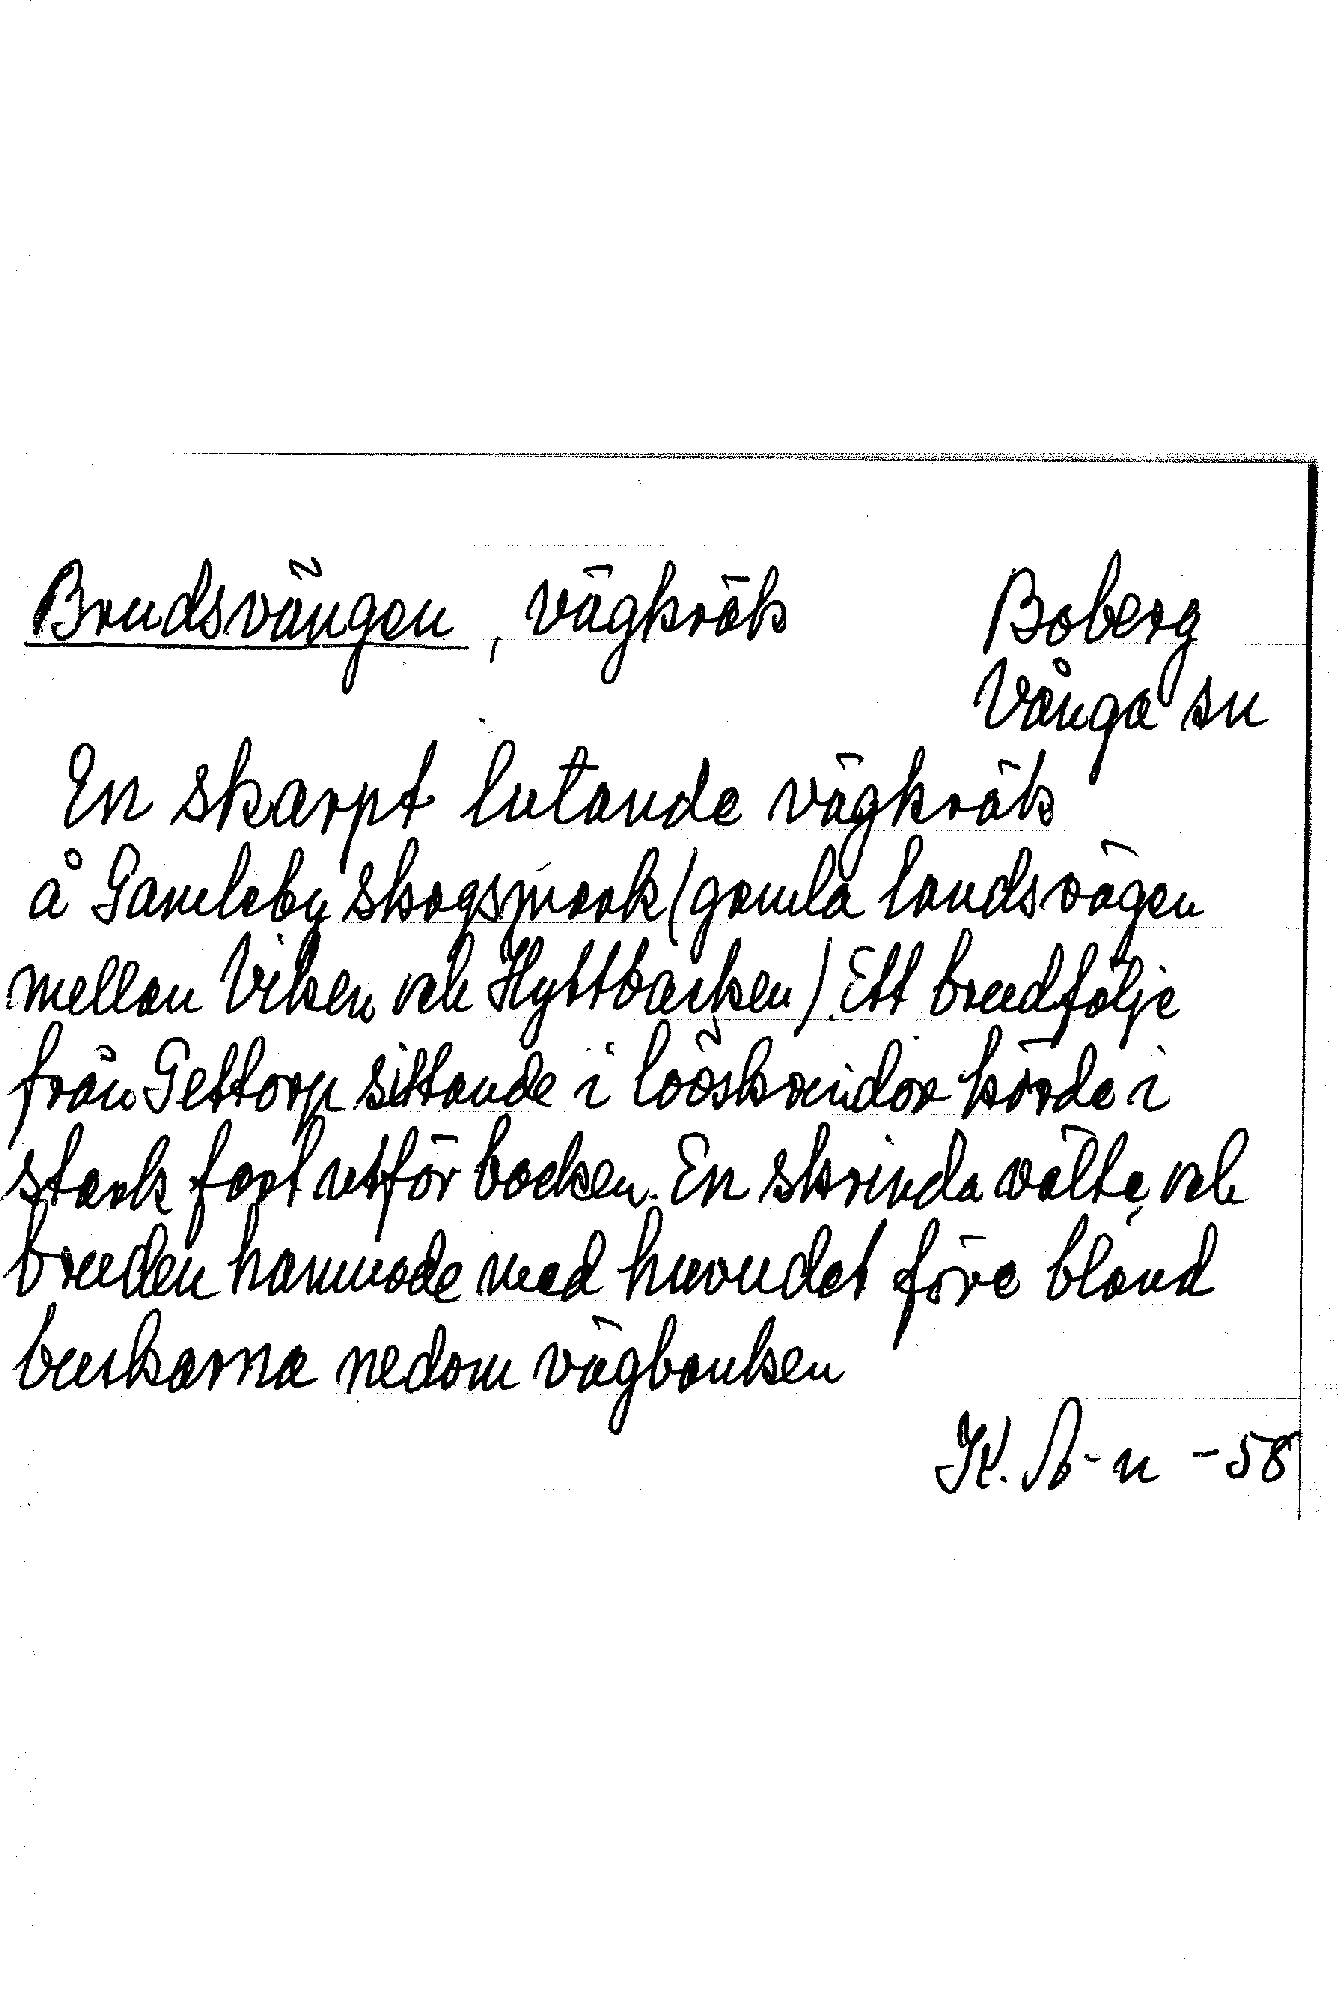 Brudsvängen, vägkrök
Boberg
Vånga sn
En skarpt lutande vägkrök
å Gamleby skogsmark (gamla landsvägen
mellan Viken och Hyttbacken). Ett brudfölje
från Gettorp sittande i lösskrindor körde i
stark fart utför backen. En skrinda välte, och
bruden hamnade med huvudet före bland
buskarna nedom vägbanken
K. A-n -58